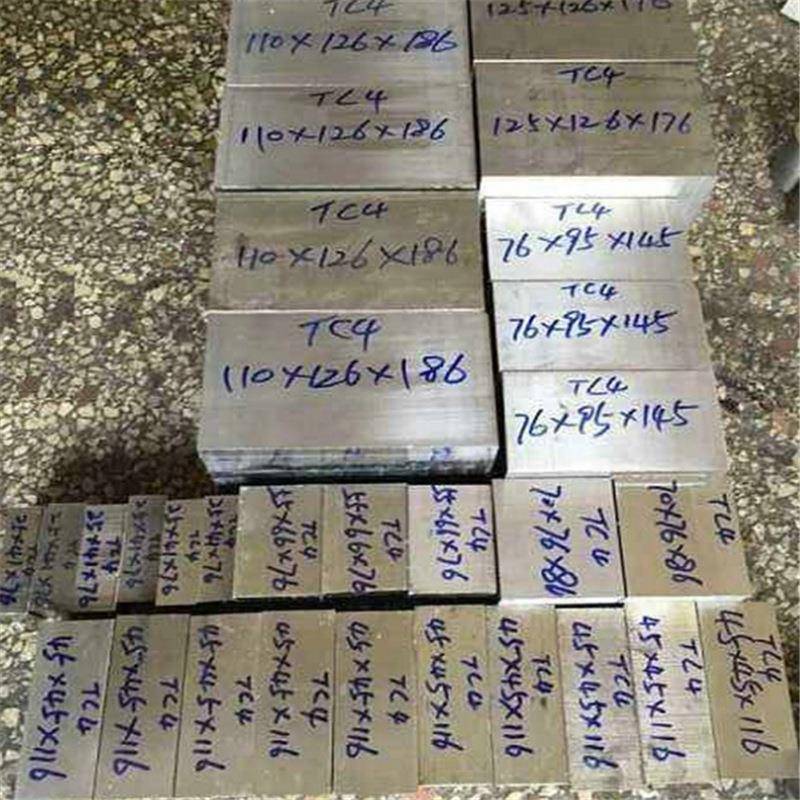 TC4
110×126×186
125×126×176
TC4
110×126×186
TC4
125×126×176
TC4
110×126×186
TC4
76×95×145
TC4
76×95×145
TC4
110×126×186
TC4
76×95×145
TC4
35×41×76
TC4
35×41×76
TC4
35×41×76
TC4
TC4
TC4
TC4
70×76×86
TC4
70×76×86
TC4
45×45×116
TC4
45×45×116
TC4
45×45×116
TC4
45×45×116
TC4
45×45×116
TC4
45×45×116
TC4
45×45×116
TC4
45×45×116
TC4
45×45×116
TC4
45×45×116